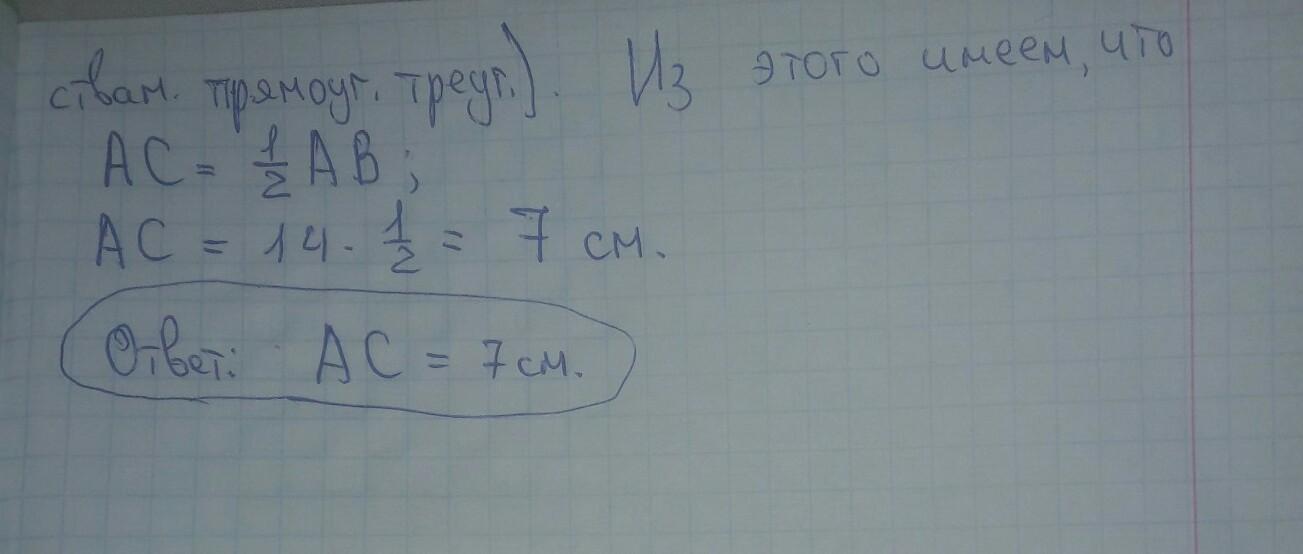 ствам. прямоуг. треуг.). Из этого имеем, что
AC = 1/2 AB;
AC = 14 · 1/2 = 7 см.
Ответ: AC = 7 см.